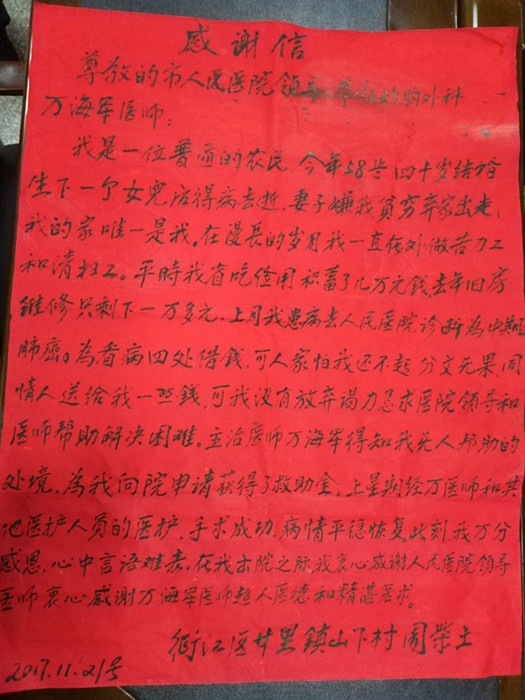 感谢信
尊敬的市人民医院领导 的胸外科
万海军医师:
我是一位普通的农民,今年58岁四十岁结婚
生下一个女兒后得病去逝,妻子嫌我貧穷弃家出走,
我的家唯一是我。在漫長的岁月我一直在外做苦力工
和清扫工。平時我省吃俭用积蓄了几万元钱去年旧房
維修只剩下一万多元,上月我患病去人民医院诊断為中期
肺癌。為看病四处借錢,可人家怕我还不起分文无果,同
情人送給我一些錢,可我没有放弃竭力恳求医院领导和
医师帮助解决困难。主治医师万海军得知我无人帮助的
处境,為我向院申請获得了救助金,上星期经万医师和其
他医护人员的医护,手术成功,病情平稳恢复,此刻,我万分
感恩,心中言语难表。在我出院之际我衷心感谢人民医院领导
医师衷心感谢万海军医师超人医德和精湛医术。
衢江区廿里鎮山下村周荣土
2017.11.21号